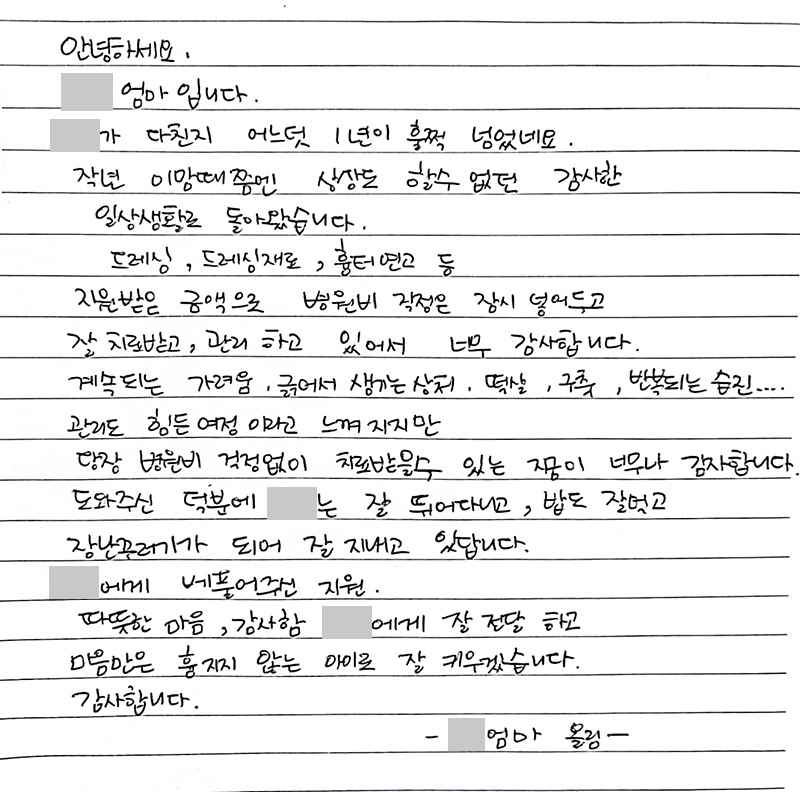 안녕하세요.
엄마 입니다.
가 다친지 어느덧 1년이 훌쩍 넘었네요.
작년 이맘때쯤엔 상상도 할수 없던 감사한
일상생활로 돌아왔습니다.
드레싱, 드레싱재료, 흉터연고 등
지원받은 금액으로 병원비 걱정은 잠시 넣어두고
잘 치료받고, 관리 하고 있어서 너무 감사합니다.
계속되는 가려움, 긁어서 생기는 상처, 떡살, 구축, 반복되는 습진....
관리도 힘든 여정 이라고 느껴지지만
당장 병원비 걱정없이 치료받을수 있는 지금이 너무나 감사합니다.
도와주신 덕분에 는 잘 뛰어다니고, 밥도 잘먹고
장난꾸러기가 되어 잘 지내고 있답니다.
에게 베풀어주신 지원.
따뜻한 마음, 감사함 에게 잘 전달 하고
마음만은 흉지지 않는 아이로 잘 키우겠습니다.
감사합니다.
- 엄마 올림 -